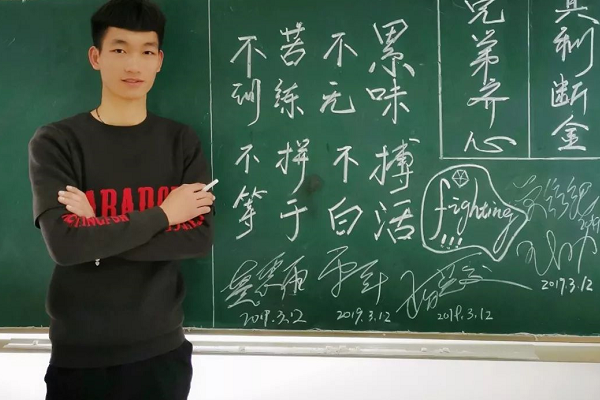 不苦不累
训练无味
不拼不搏
等于白活
兄弟齐心
其利断金
fighting
!!!
2019.3.12
2019.3.12
2019.3.12
2019.3.12